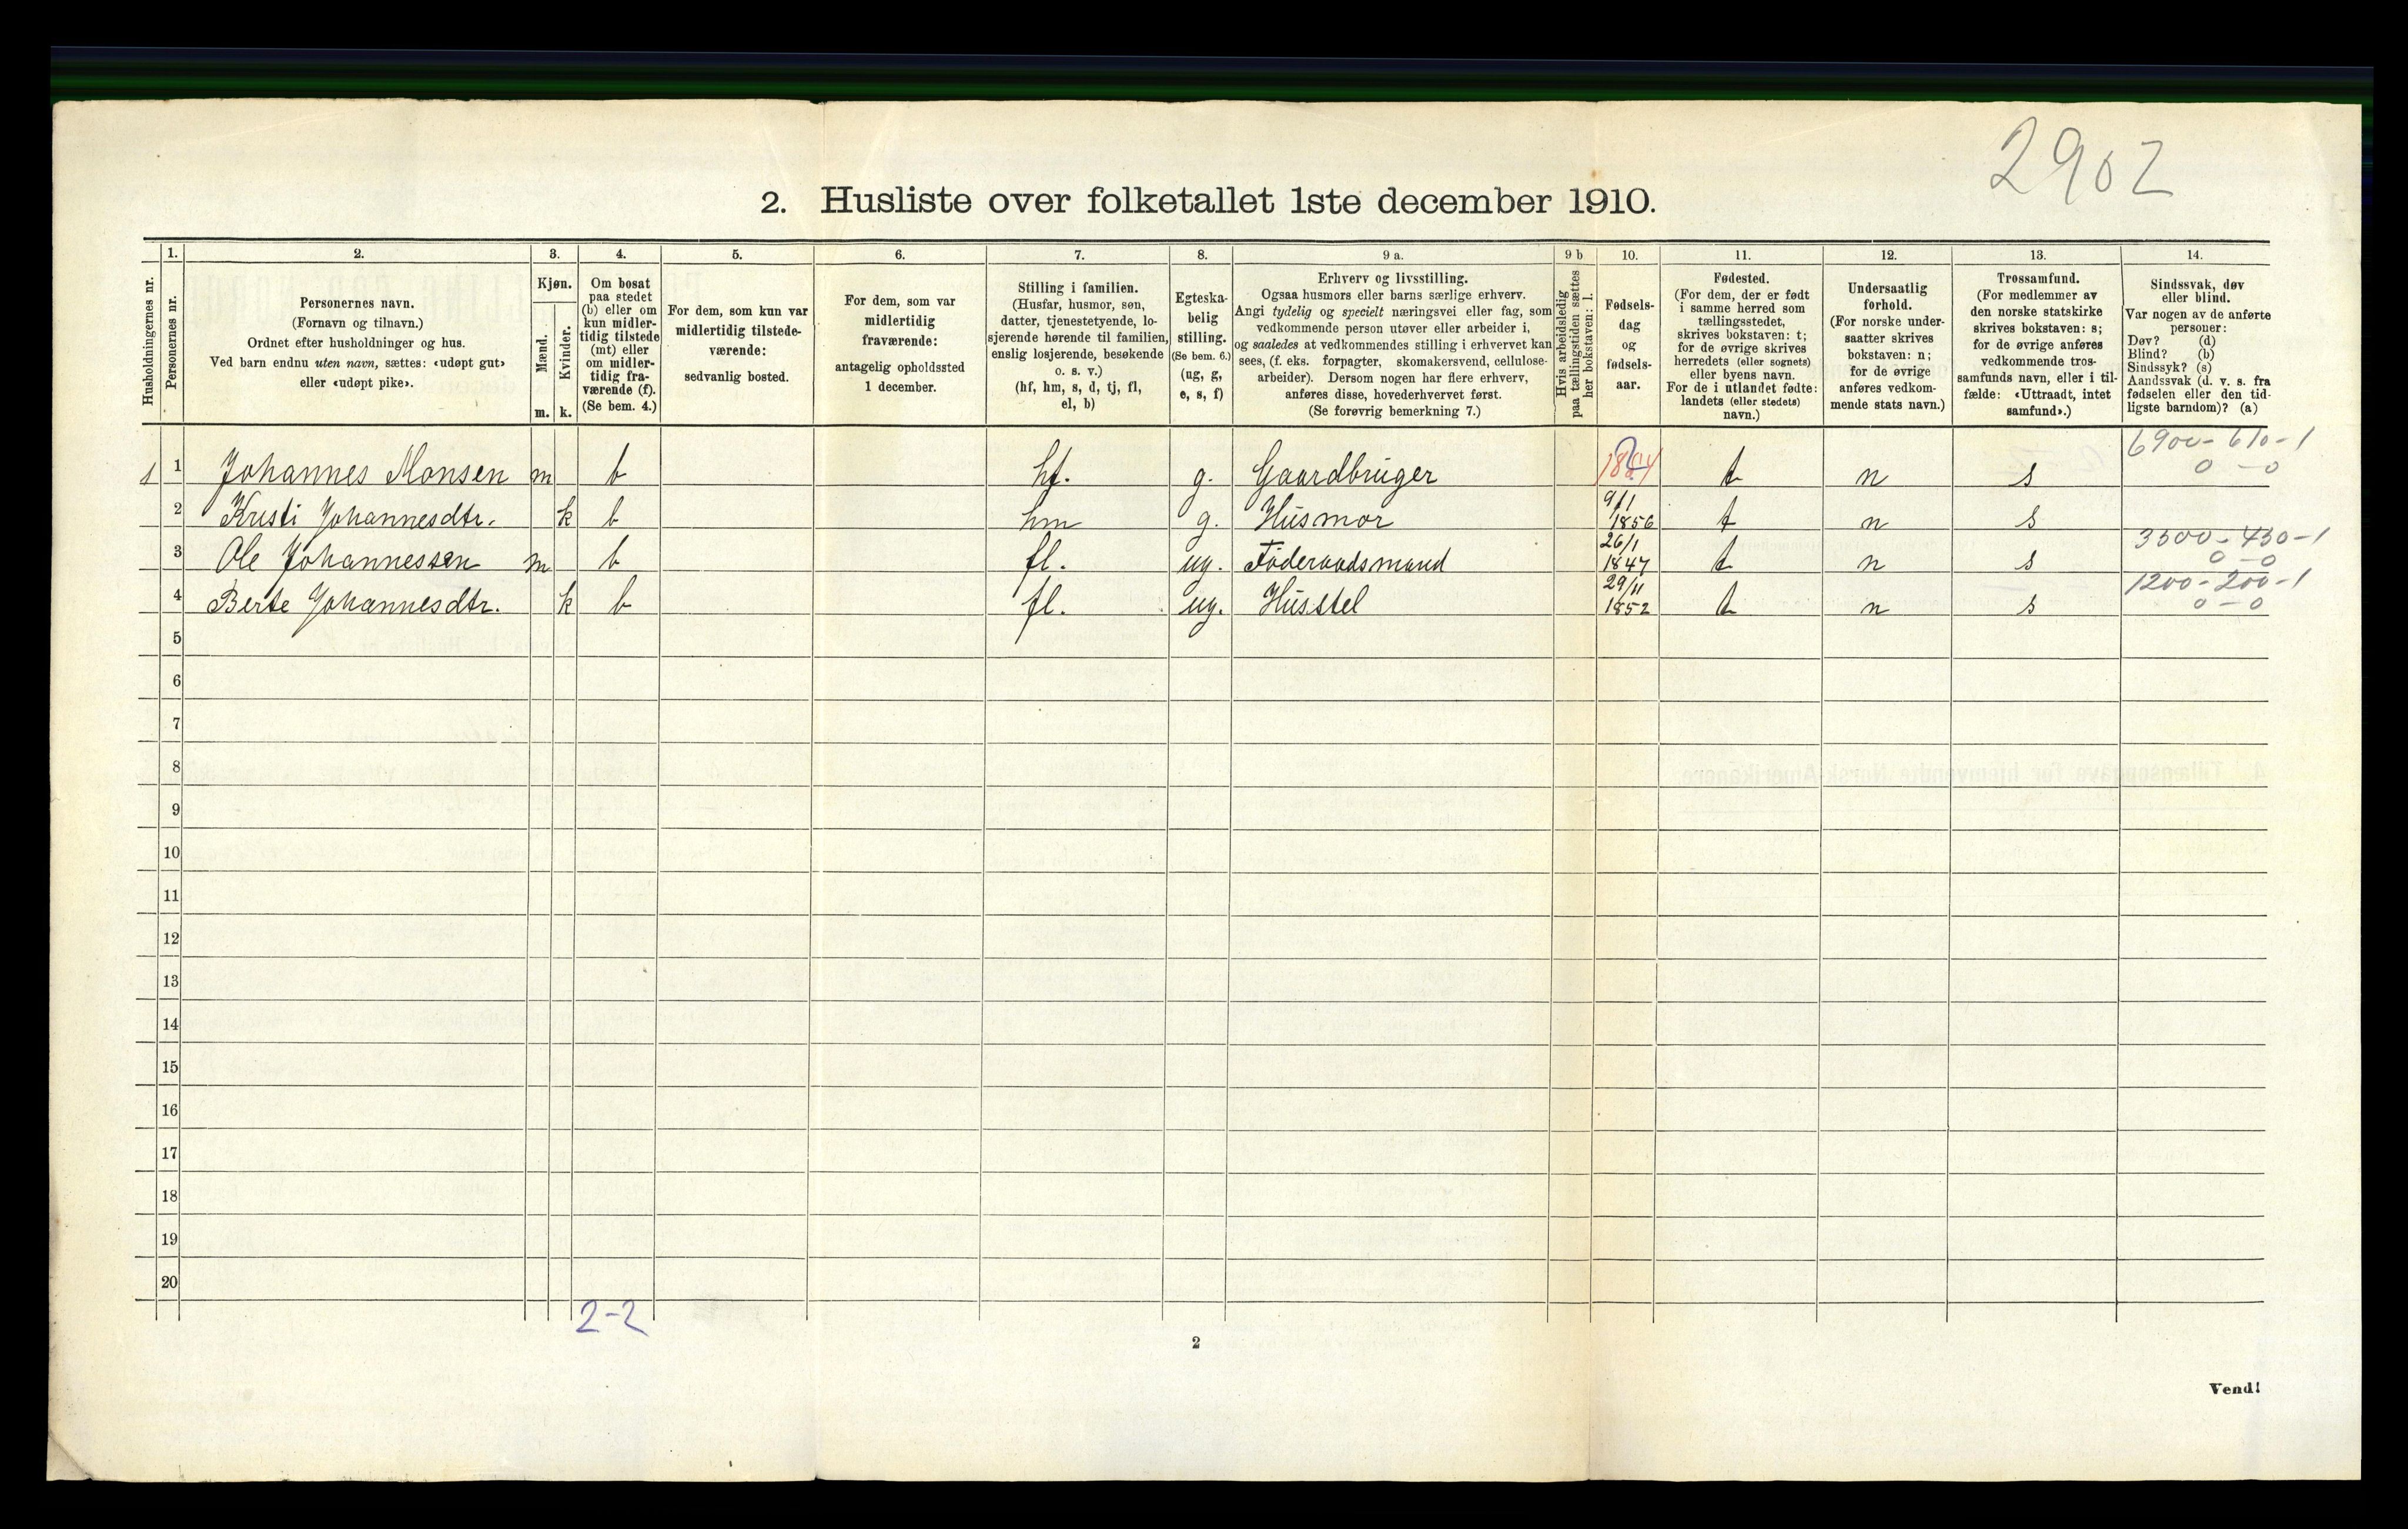 2902
2. Husliste over folketallet 1ste december 1910.
Husholdningernes nr.
1.
Personernes nr.
2.
Personernes navn.
(Fornavn og tilnavn.)
Ordnet efter husholdninger og hus.
Ved barn endnu uten navn, sættes: «udøpt gut»
eller «udøpt pike».
3.
Kjøn.
Mænd.
m.
Kvinder.
k.
4.
Om bosat
paa stedet
(b) eller om
kun midler-
tidig tilstede
(mt) eller
om midler-
tidig fra-
værende (f).
(Se bem. 4.)
5.
For dem, som kun var
midlertidig tilstede-
værende:
sedvanlig bosted.
6.
For dem, som var
midlertidig
fraværende:
antagelig opholdssted
1 december.
7.
Stilling i familien.
(Husfar, husmor, søn,
datter, tjenestetyende, lo-
sjerende hørende til familien,
enslig losjerende, besøkende
o. s. v.)
(hf, hm, s, d, tj, fl,
el, b)
8.
Egteska-
belig
stilling.
(Se bem. 6.)
(ug, g,
e, s, f)
9 a.
Erhverv og livsstilling.
Ogsaa husmors eller barns særlige erhverv.
Angi tydelig og specielt næringsvei eller fag, som
vedkommende person utøver eller arbeider i,
og saaledes at vedkommendes stilling i erhvervet kan
sees, (f. eks. forpagter, skomakersvend, cellulose-
arbeider). Dersom nogen har flere erhverv,
anføres disse, hovederhvervet først.
(Se forøvrig bemerkning 7.)
9 b
Hvis arbeidsledig
paa tællingstiden sættes
her bokstaven: l.
10.
Fødsels-
dag
og
fødsels-
aar.
11.
Fødested.
(For dem, der er født
i samme herred som
tællingsstedet,
skrives bokstaven: t;
for de øvrige skrives
herredets (eller sognets)
eller byens navn.
For de i utlandet fødte:
landets (eller stedets)
navn.)
12.
Undersaatlig
forhold.
(For norske under-
saatter skrives
bokstaven: n;
for de øvrige
anføres vedkom-
mende stats navn.)
13.
Trossamfund.
(For medlemmer av
den norske statskirke
skrives bokstaven: s;
for de øvrige anføres
vedkommende tros-
samfunds navn, eller i til-
fælde: «Uttraadt, intet
samfund».)
14.
Sindssvak, døv
eller blind.
Var nogen av de anførte
personer:
Døv? (d)
Blind? (b)
Sindssyk? (s)
Aandssvak (d. v. s. fra
fødselen eller den tid-
ligste barndom)? (a)
1 1 Johannes Monsen m b hf. g. Gaardbruger t n s 6900-610-1 0-0
2 Kristi Johannesdtr. k b hm g. Husmor 9/1 1856 t n s
3 Ole Johannessen m b fl. ug. Föderaadsmand 26/1 1847 t n s 3500-430-1 0-0
4 Berte Johannesdtr. k b fl. ug. Husstel 29/11 1852 t n s 1200-200-1 0-0
5
6
7
8
9
10
11
12
13
14
15
16
17
18
19
20
2-2
2
Vend!